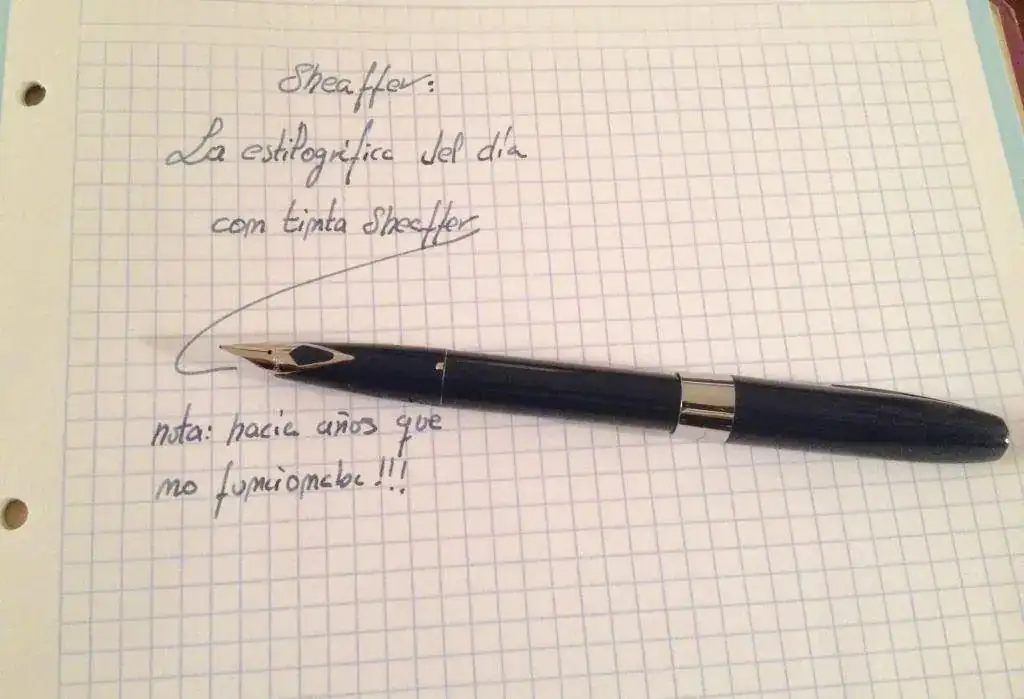 Sheaffer:
La estilográfica del día
con tinta Sheaffer
nota: hacía años que
no funcionaba!!!